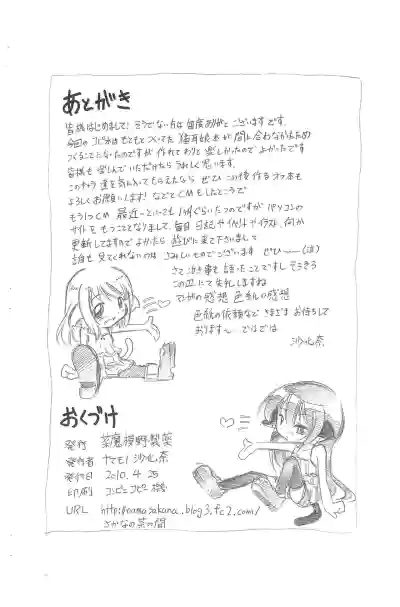 あとがき
皆様はじめまして！そうでない方は毎度ありがとうございますです。
今回のコピー本はもともとつくってた猫耳娘本が間に合わなかったため
つくることになったのですが作れてわりと楽しかったのでよかったです
皆様も楽しんでいただけたらうれしく思います。
このキャラ達を気に入ってもらえたなら ぜひこの後作るオフ本も
よろしくお願いします！などとCMをしたところで
もう1つCM 最近ーといっても 1ヶ月ぐらいたつのですが パソコンの
サイトをもつこととなりまして、毎日 日記やイベントやイラスト、何か
更新してますのでよかったら 遊びに来て下さいまして
誰も見てくれないのは さみしいものでございます ぜひーー(は)
さて 泣き事も語ったことですしそろそろ
この辺にて失礼しますね
マンガの感想 色紙の感想
色紙の依頼など さまざま お待ちして
おります～ ではでは
沙化奈
おくづけ
発行 薬魔模野製薬
発行者 ヤマモノ 沙化奈
発行日 2010.4.25
印刷 コンビニコピー機
URL http://namasakana.blog3.fc2.com/
さかなの茶の間